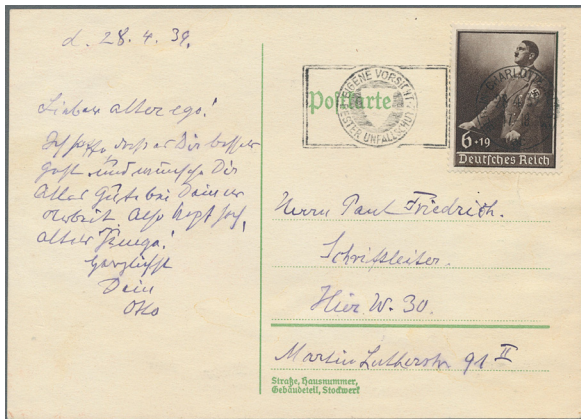 d. 28.4.39.
Lieber alter ego!
Ich hoffe, dass es Dir besser
geht und wünsche Dir
alles Gute bei Deiner
Arbeit also Kopf hoch,
alter Junge!
Herzlichst
Dein
Otto
EIGENE VORSICHT
BESTER UNFALLSCHUTZ
Postkarte
CHARLOTT
6+19
Deutsches Reich
Herrn Paul Friedrich.
Schriftleiter.
Hier W. 30.
Martin Lutherstr 91 II
Straße, Hausnummer,
Gebäudeteil, Stockwerk